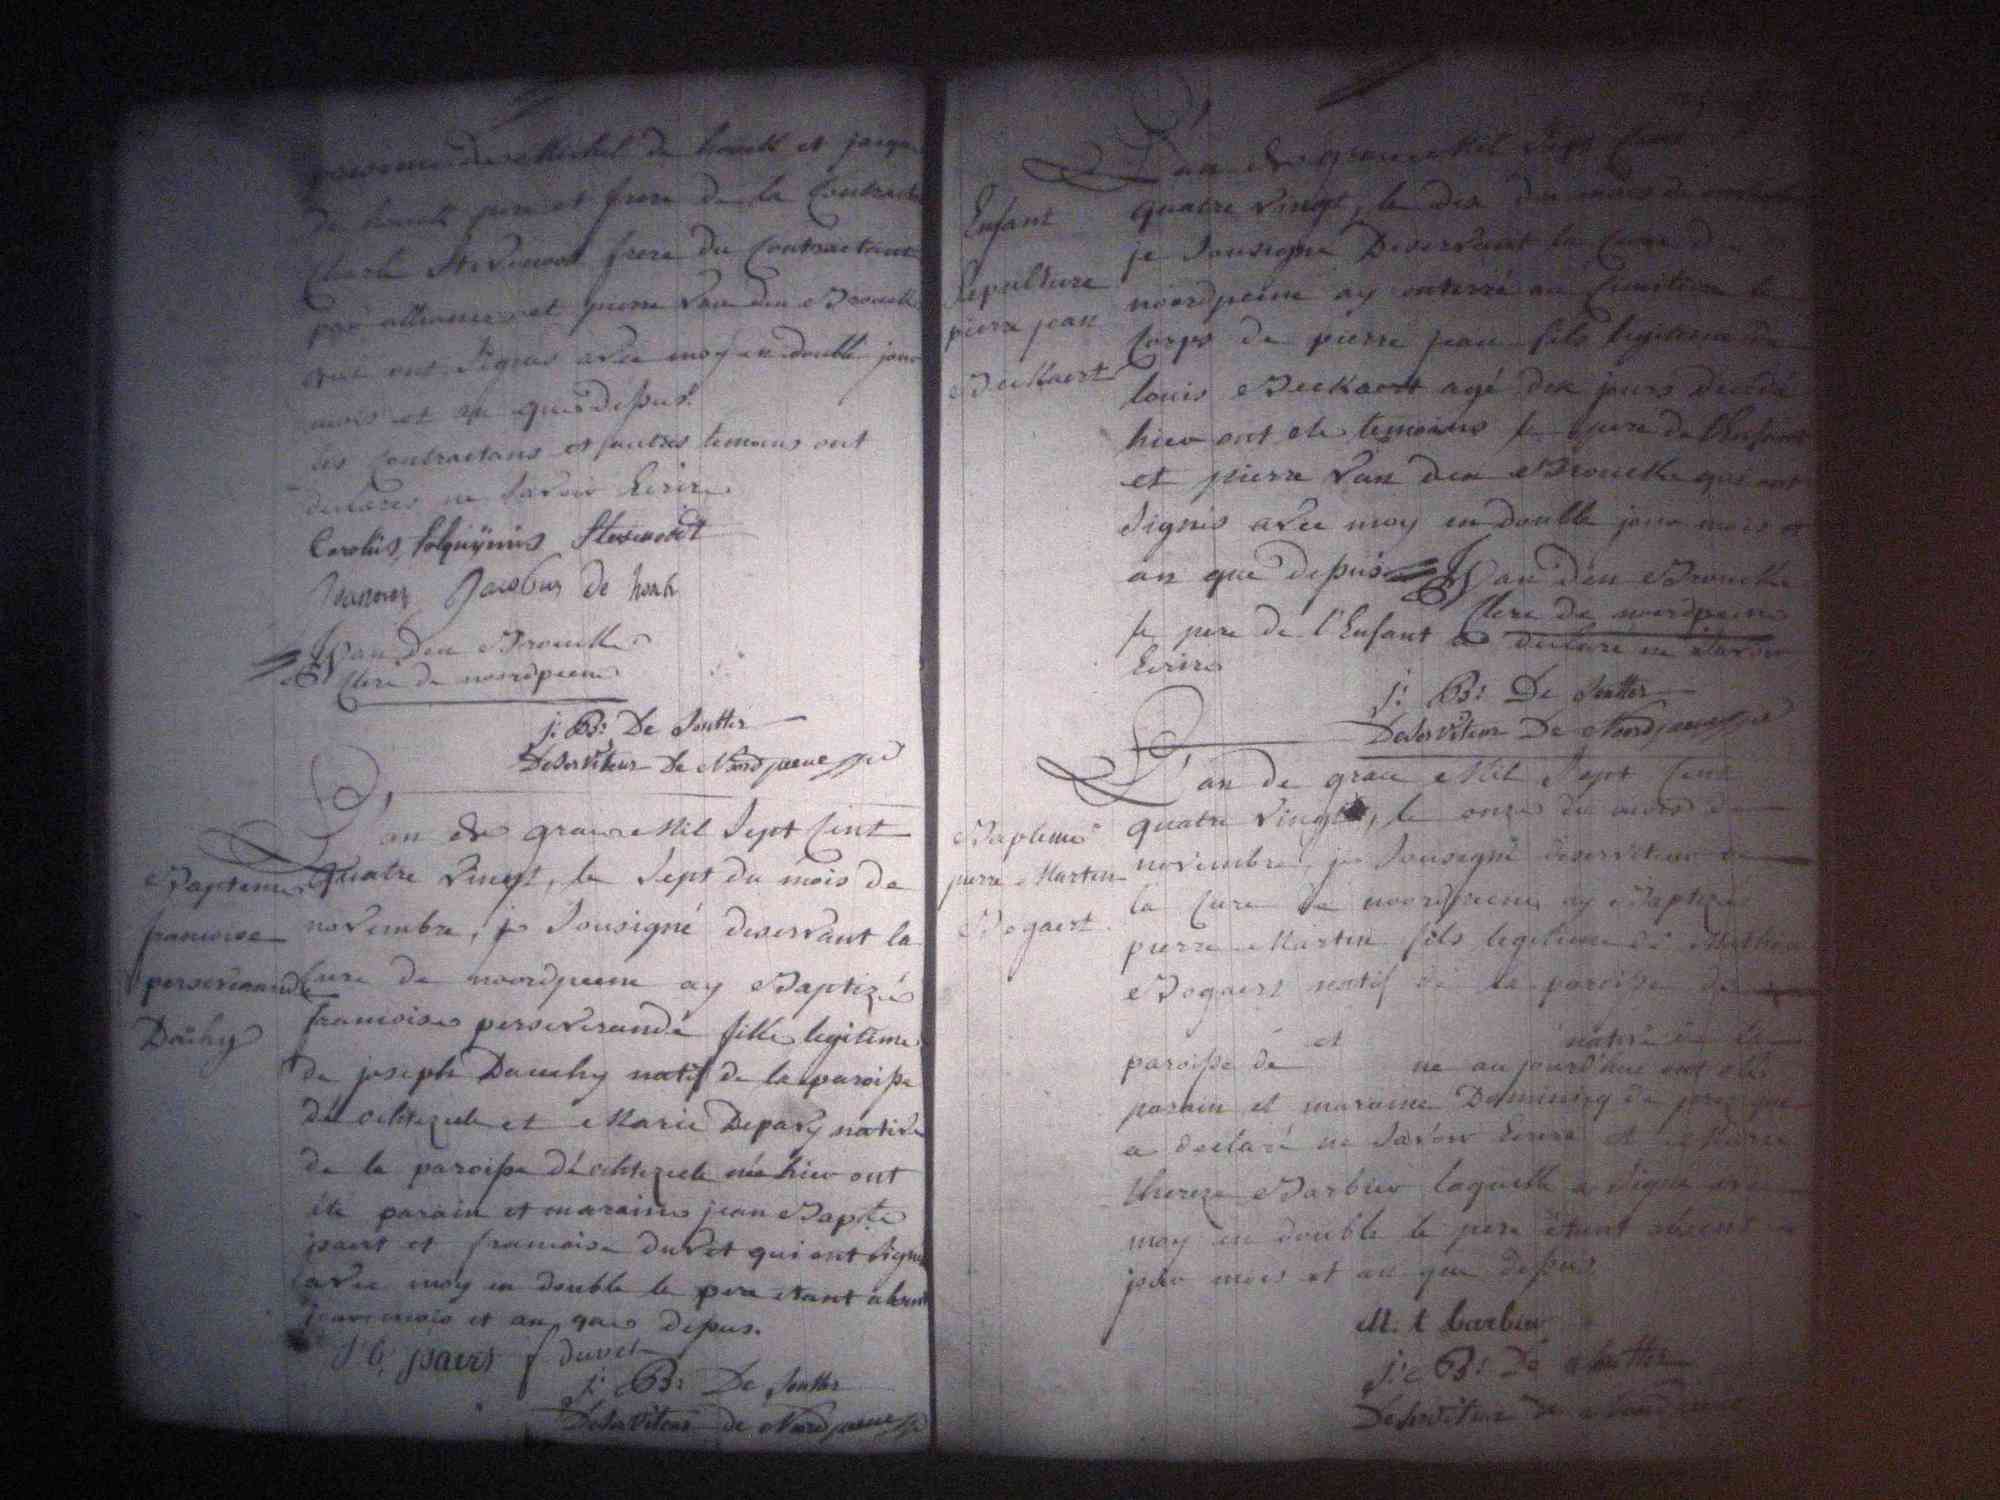 de houck pere et frere de la Contractante
Charle Stevenoot frere du Contractant
par alliance et pierre Van den Broucke
qui ont signés avec moy en double jour
mois et an que depus.
les contractans et autres temoins ont
declarés ne savoir Ecrire
Carolus Stevenoodt
Jacobus de houck
Van Den Broucke
Clerc de noordpeene
j: B: De Sutter
Deserviteur De Noordpeene
L'an de grace Mil Sept Cent
Quatre Vingt, le Sept du mois de
novembre, je Sousigné deservant la
Cure de noordpeene ay Baptizé
francoise perseverande fille legitime
de joseph Dauchy natif de la paroisse
de ochtezeele et Marie Depary native
de la paroisse d'ochtezeele née hier ont
été parain et maraine jean Bapte
jsaert et francoise duvet qui ont signé
avec moy en double le pere etant absent
jour mois et an que depus.
j b jsaert f duvet
j: B: De Sutter
Deserviteur de Noordpeene
Bapteme
francoise
perseverande
Dauhy
L'an de grace Mil Sept Cent
quatre Vingt, le dix du mois de novembre
je Sousigné Deservant la Cure de
noordpeene ay enterré au Cimitiere le
Corps de pierre jean fils legitime de
louis Beckaert agé dix jours decedé
hier ont eté temoins le pere de l'Enfant
et pierre Van den Broucke qui ont
Signés avec moy en double jour mois et
an que depus Van den Broucke
Clerc de noordpeene
le pere de l'Enfant a declaré ne Savoir
Ecrire
j: B: De Sutter
Deserviteur De Noordpeene
Enfant
Sepulture
pierre jean
Beckaert
L'an de grace Mil Sept Cent
quatre Vingt, le onze du mois de
novembre, je Sousigné deserviteur de
la Cure de noordpeene ay Baptizé
pierre Martin fils legitime de Mathieu
Bogaert natif de la paroisse de
et native de la
paroisse de né aujourd'hui ont eté
parain et maraine Dominicq de
a declaré ne Savoir Ecrire et Marie
thereze Barbier laquelle a Signé avec
moy en double le pere étant absent
jour mois et an que depus
M. t barbier
j: B: De Sutter
Deserviteur de Noordpeene
Bapteme
pierre Martin
Bogaert